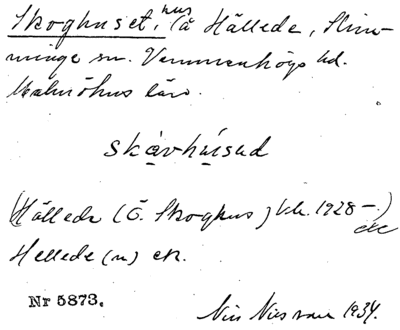 Skoghuset, hus å Hällede, Slim-
minge sn. Vemmenhögs hd.
Malmöhus län.
skåvhúsəd
(Hällede (Ö. Skoghus) kbr. 1928 –) etc
Hellede (n) ek.
Nr 5873.
Nils 1934.